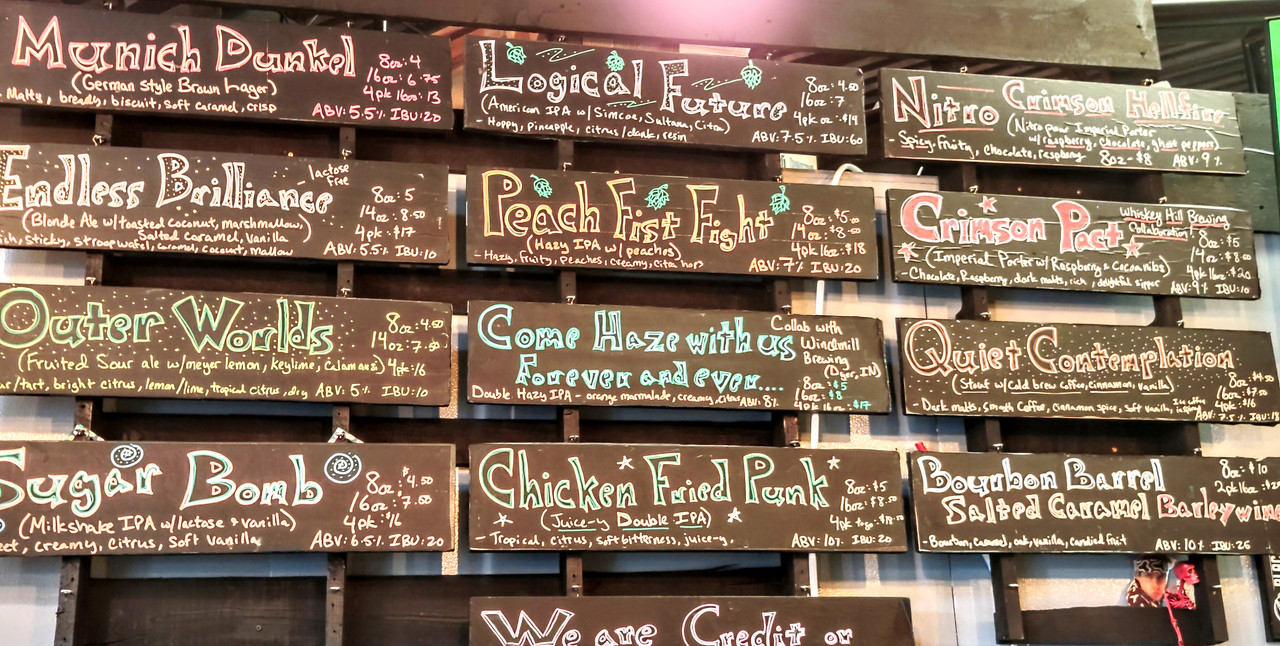 Munich Dunkel
(German style Brown Lager)
Malty, bready, biscuit, soft caramel, crisp
8oz: 4
16oz: 6.75
4pk 16oz: 13
ABV: 5.5% IBU: 20
Endless Brilliance
lactose free
(Blonde Ale w/toasted coconut, marshmallow,
Salted Caramel, Vanilla)
sticky, stroopwafel, caramel, coconut, mallow
8oz: 5
14oz: 8.50
4pk: $17
ABV: 5.5% IBU: 10
Outer Worlds
(Fruited Sour ale w/meyer lemon, keylime, calamansi)
/tart, bright citrus, lemon/lime, tropical citrus, dry
8oz: 4.50
14oz: 7.50
4pk: 16
ABV: 5% IBU: 10
Sugar Bomb
(Milkshake IPA w/lactose + vanilla)
creamy, citrus, soft vanilla
8oz: $4.50
16oz: $7.00
4pk: $16
ABV: 6.5% IBU: 20
Logical Future
(American IPA w/ Simcoe, Sultana, Citra)
- Hoppy, pineapple, citrus/dank, resin
8oz: 4.50
16oz: 7
4pk 16oz: $19
ABV: 7.5% IBU: 60
Peach Fist Fight
(Hazy IPA w/ peaches)
- Hazy, fruity, peaches, creamy, citra hops
8oz: $5.00
14oz: $8.50
4pk 16oz: $18
ABV: 7% IBU: 20
Come Haze with us
Forever and ever....
Collab with
Windmill
Brewing
(Dyer, IN)
Double Hazy IPA - orange marmalade, creamy, citrus ABV: 8%
8oz: $5
16oz: $8
4pk 16oz: $17
Chicken Fried Punk
(Juice-y Double IPA)
- Tropical, citrus, soft bitterness, juice-y.
8oz: $5
16oz: $8.50
4pk
ABV: 10% IBU: 20
We are Credit or
Nitro Crimson Hellfire
(Nitro pour Imperial Porter
w/raspberry, chocolate, ghost peppers)
Spicy, fruity, chocolate, raspberry 8oz - $8 ABV: 9%
Crimson Pact
Whiskey Hill Brewing
Collaboration!
(Imperial Porter w/ Raspberry & Cacao nibs)
- Chocolate, Raspberry, dark malts, rich, delightful sipper
8oz: $5
14oz: $8.50
4pk 16oz: $20
ABV: 9% IBU: 10
Quiet Contemplation
(Stout w/ Cold brew coffee, cinnamon, vanilla)
- Dark malts, smooth Coffee, cinnamon spice, soft vanilla,
8oz: $4.50
16oz: $7.50
4pk: $16
ABV: 7.5% IBU: 18
Bourbon Barrel
Salted Caramel Barleywine
- Bourbon, caramel, oak, vanilla, candied fruit
8oz: $10
2pk 16oz:
ABV: 10% IBU: 26